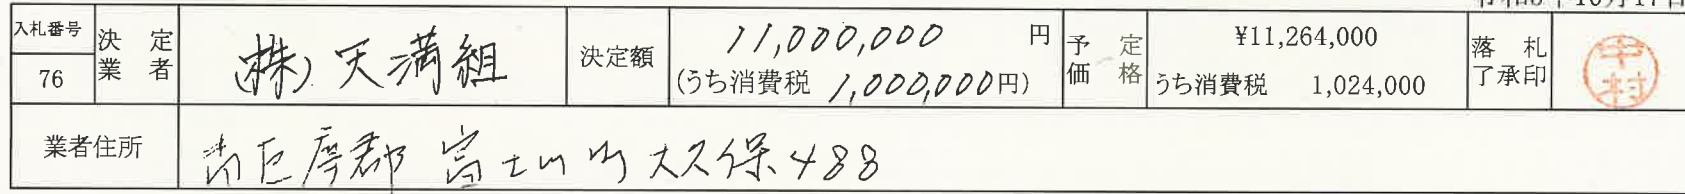 入札番号 76 決定業者 (株)天満組 決定額 11,000,000 円 (うち消費税 1,000,000円) 予定価格 ¥11,264,000 うち消費税 1,024,000 落札了承印 中村
業者住所 南巨摩郡 富士川町 大久保488